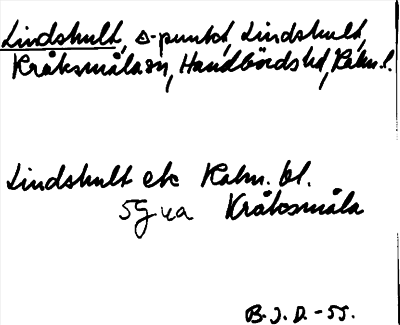 Lindshult, △-punkt, Lindshult,
Kråksmåla sn, Handbörds hd, Kalm. l.
Lindshult ek Kalm. bl.
5G va Kråksmåla
B.J.D. -55.